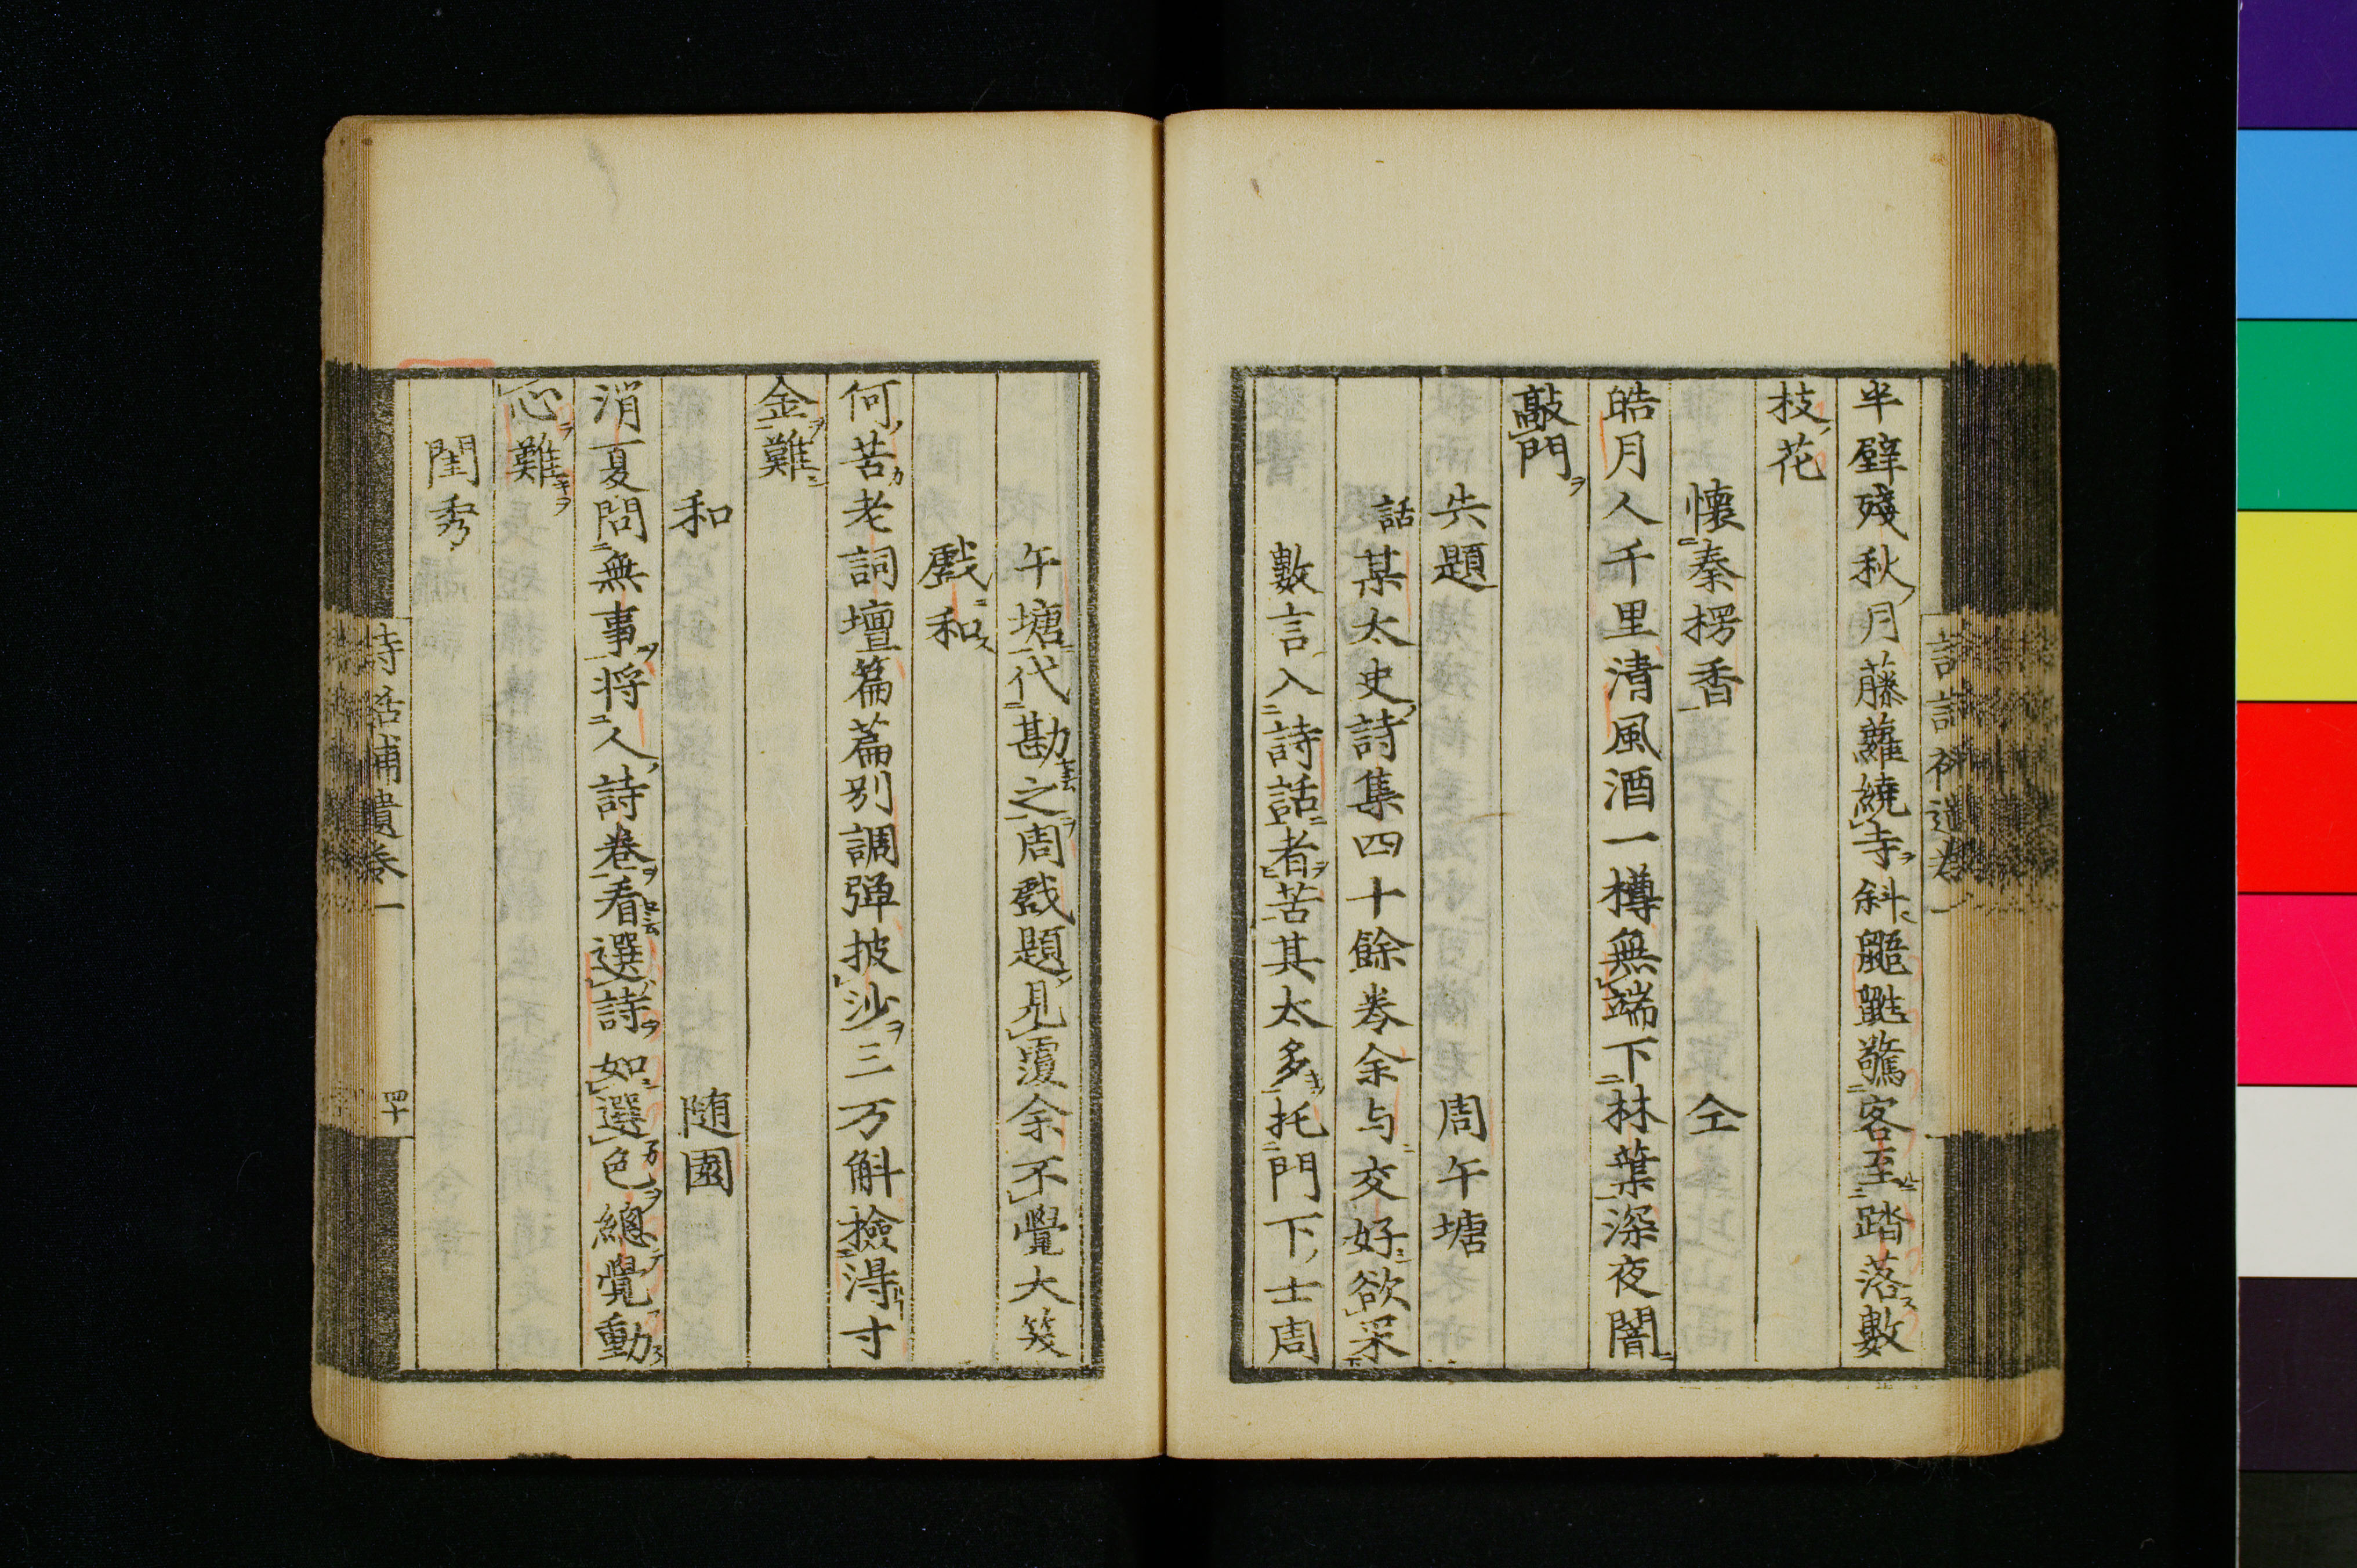 半壁殘秋月藤蘿繞寺斜鼯鼪驚客至踏落數
枝花
懷秦楞香 仝
皓月人千里清風酒一樽無端下林葉深夜闇
敲門
失題 周午塘
話某太史詩集四十餘卷余与交好欲采
數言入詩話者苦其太多托門下士周
午塘代勘之周戲題見覆余不覺大笑
戲和
何苦老詞壇篇篇別調弾披沙三万斛撿得寸
金難
和 随園
消夏問無事将人詩卷看選詩如選色總覺動
心難
閨秀
詩話補遺卷一
四十